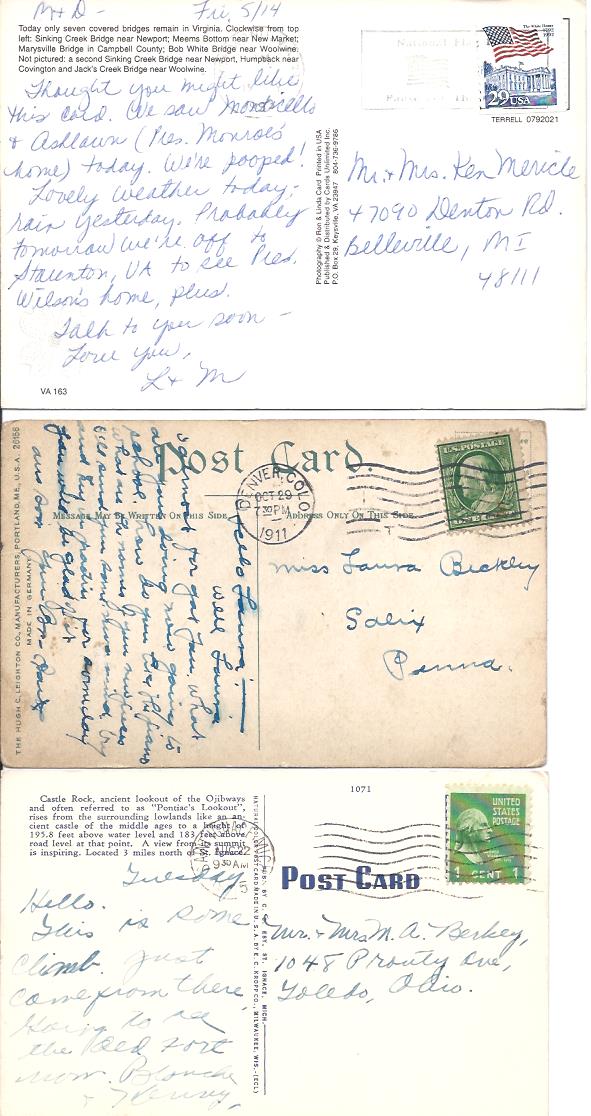 M + D - Fri, 5/14
Today only seven covered bridges remain in Virginia. Clockwise from top
left: Sinking Creek Bridge near Newport; Meems Bottom near New Market;
Marysville Bridge in Campbell County; Bob White Bridge near Woolwine.
Not pictured: a second Sinking Creek Bridge near Newport, Humpback near
Covington and Jack's Creek Bridge near Woolwine.
Thought you might like
this card. We saw Monticello
+ Ashlawn (Pres. Monroe's
home) today. We're pooped!
Lovely weather today;
rain yesterday. Probably
tomorrow we're off to
Staunton, VA to see Pres.
Wilson's home, plus.
Talk to you soon -
Love you,
L + M
VA 163
Photography © Ron & Linda Card Printed in USA
Published & Distributed by Cards Unlimited Inc.
P.O. Box 29, Keysville, VA 23947 804-736-9786
National Flag
The White House
1792 1992
29 USA
TERRELL 0792021
Mr. + Mrs. Ken Mericle
47090 Denton Rd.
Belleville, MI
48111
THE HUGH C. LEIGHTON CO., MANUFACTURERS, PORTLAND, ME., U.S.A. 26156
MADE IN GERMANY
Post Card.
MESSAGE MAY BE WRITTEN ON THIS SIDE
ADDRESS ONLY ON THIS SIDE
DENVER, COLO.
OCT 29
7 30 PM
1911
U.S. POSTAGE
Hello Laura:
Well Laura
what
are you doing now going to
school. How do you like
what are the names of your
and
you
and
Miss Laura Beckley
Salix
Penna.
Castle Rock, ancient lookout of the Ojibways
and often referred to as "Pontiac's Lookout",
rises from the surrounding lowlands like an an-
cient castle of the middle ages to a height of
195.8 feet above water level and 183 feet above
road level at that point. A view from its summit
is inspiring. Located 3 miles north of St. Ignace
1071
AUG 22
9 30 AM
UNITED
STATES
POSTAGE
1 CENT 1
POST CARD
Tuesday
Hello.
This is some
climb. Just
come from there
Going to see
the Old Fort
now. Blanche
+ Henry,
Mr. + Mrs M. A. Berkey,
1048 Prouty Ave,
Toledo, Ohio.